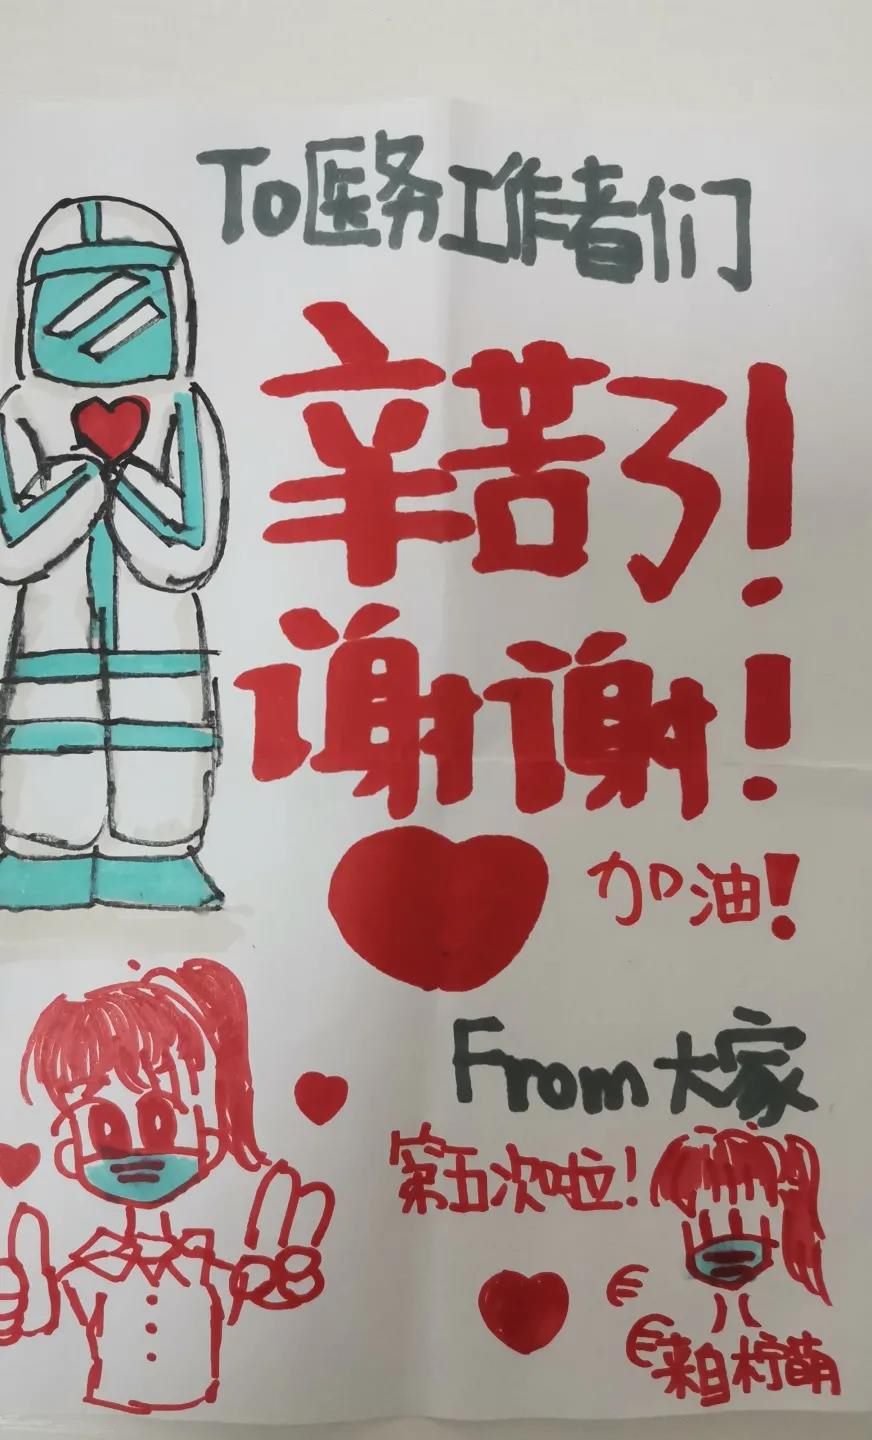 To医务工作者们
辛苦了！
谢谢！
加油！
From大家
第五次啦！
来自柠萌